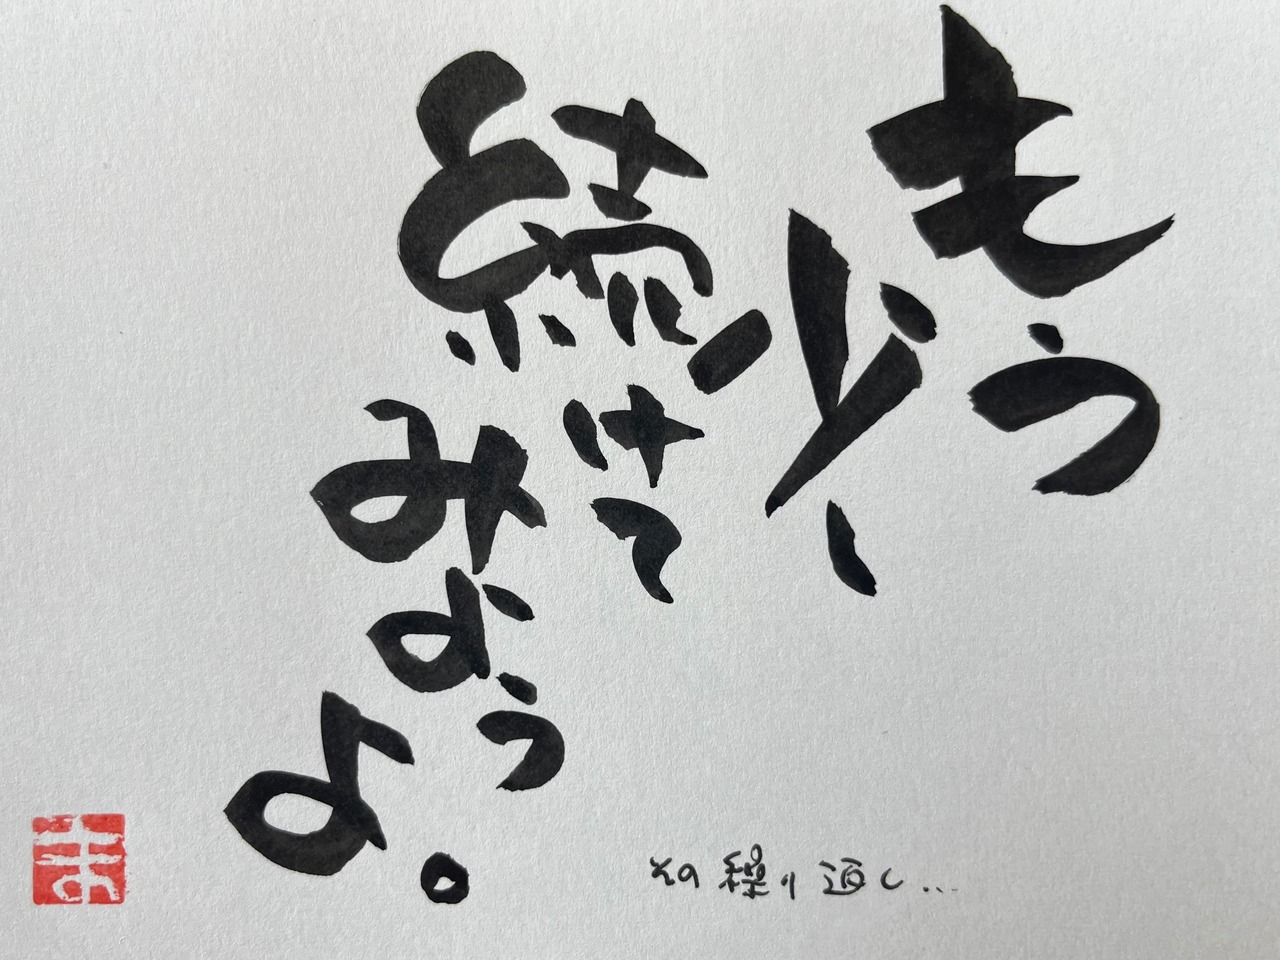 もう
少し
続けて
みようよ。
その繰り返し…